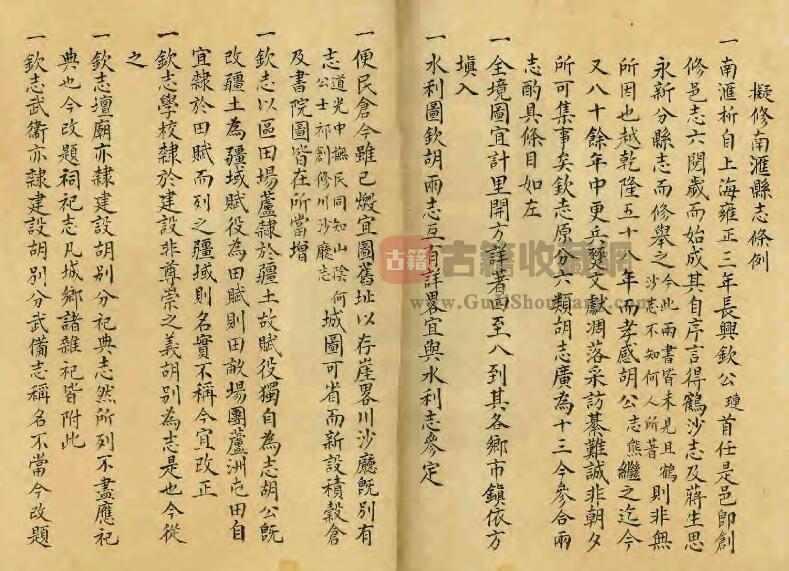 擬修南滙縣志條例
一南滙析自上海雍正三年長興欽公璉首任是邑即創
修邑志六閱歲而始成其自序言得鶴沙志及蔣生思
永新分縣志而修舉之今此兩書皆未見且鶴沙志不知何人所著則非無
所因也越乾隆五十八年而孝感胡公志熊繼之迄今
又八十餘年中更兵燹文獻凋落采訪綦難誠非朝夕
所可集事矣欽志原分六類胡志廣為十三今參合兩
志酌具條目如左
一全境圖宜計里開方詳著四至八到其各鄉市鎮依方
填入
一水利圖欽胡兩志互有詳畧宜與水利志參定
一便民倉今雖已燬宜圖舊址以存崖畧川沙廳既別有
志道光中撫民同知山陰何公士祁創修川沙廳志城圖可省而新設積穀倉
及書院圖皆在所當增
一欽志以區田場蘆隸於疆土故賦役獨自為志胡公既
改疆土為疆域賦役為田賦則田畝場團蘆洲屯田自
宜隸於田賦而列之疆域則名實不稱今宜改正
一欽志學校隸於建設非尊崇之義胡別為志是也今從
之
一欽志壇廟亦隸建設胡別分祀典志然所列不盡應祀
典也今改題祠祀志凡城鄉諸雜祀皆附此
一欽志武衛亦隸建設胡別分武備志稱名不當今改題
古籍
古籍收藏網
www.GuJiShouCang.com